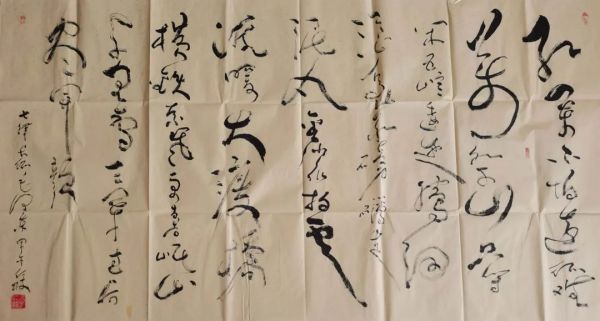 红军不怕远征难
万水千山只等
闲五岭逶迤腾细
浪乌蒙磅礴走
泥丸金沙水拍云
崖暖大渡橋
横铁索寒更喜岷山
千里雪三军过后
尽开颜
七律长征毛泽东甲午